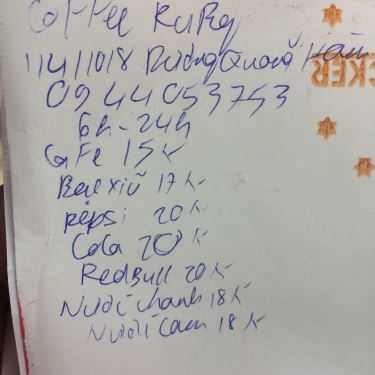 Coffee RuRy
114/1018 Dương Quảng Hàm
0944053753
6h-24h
CaFe 15k
Bạcxỉu 17k
pepsi 20k
Cola 20k
RedBull 20k
Nước chanh 18k
Nước Cam 18k
CKER